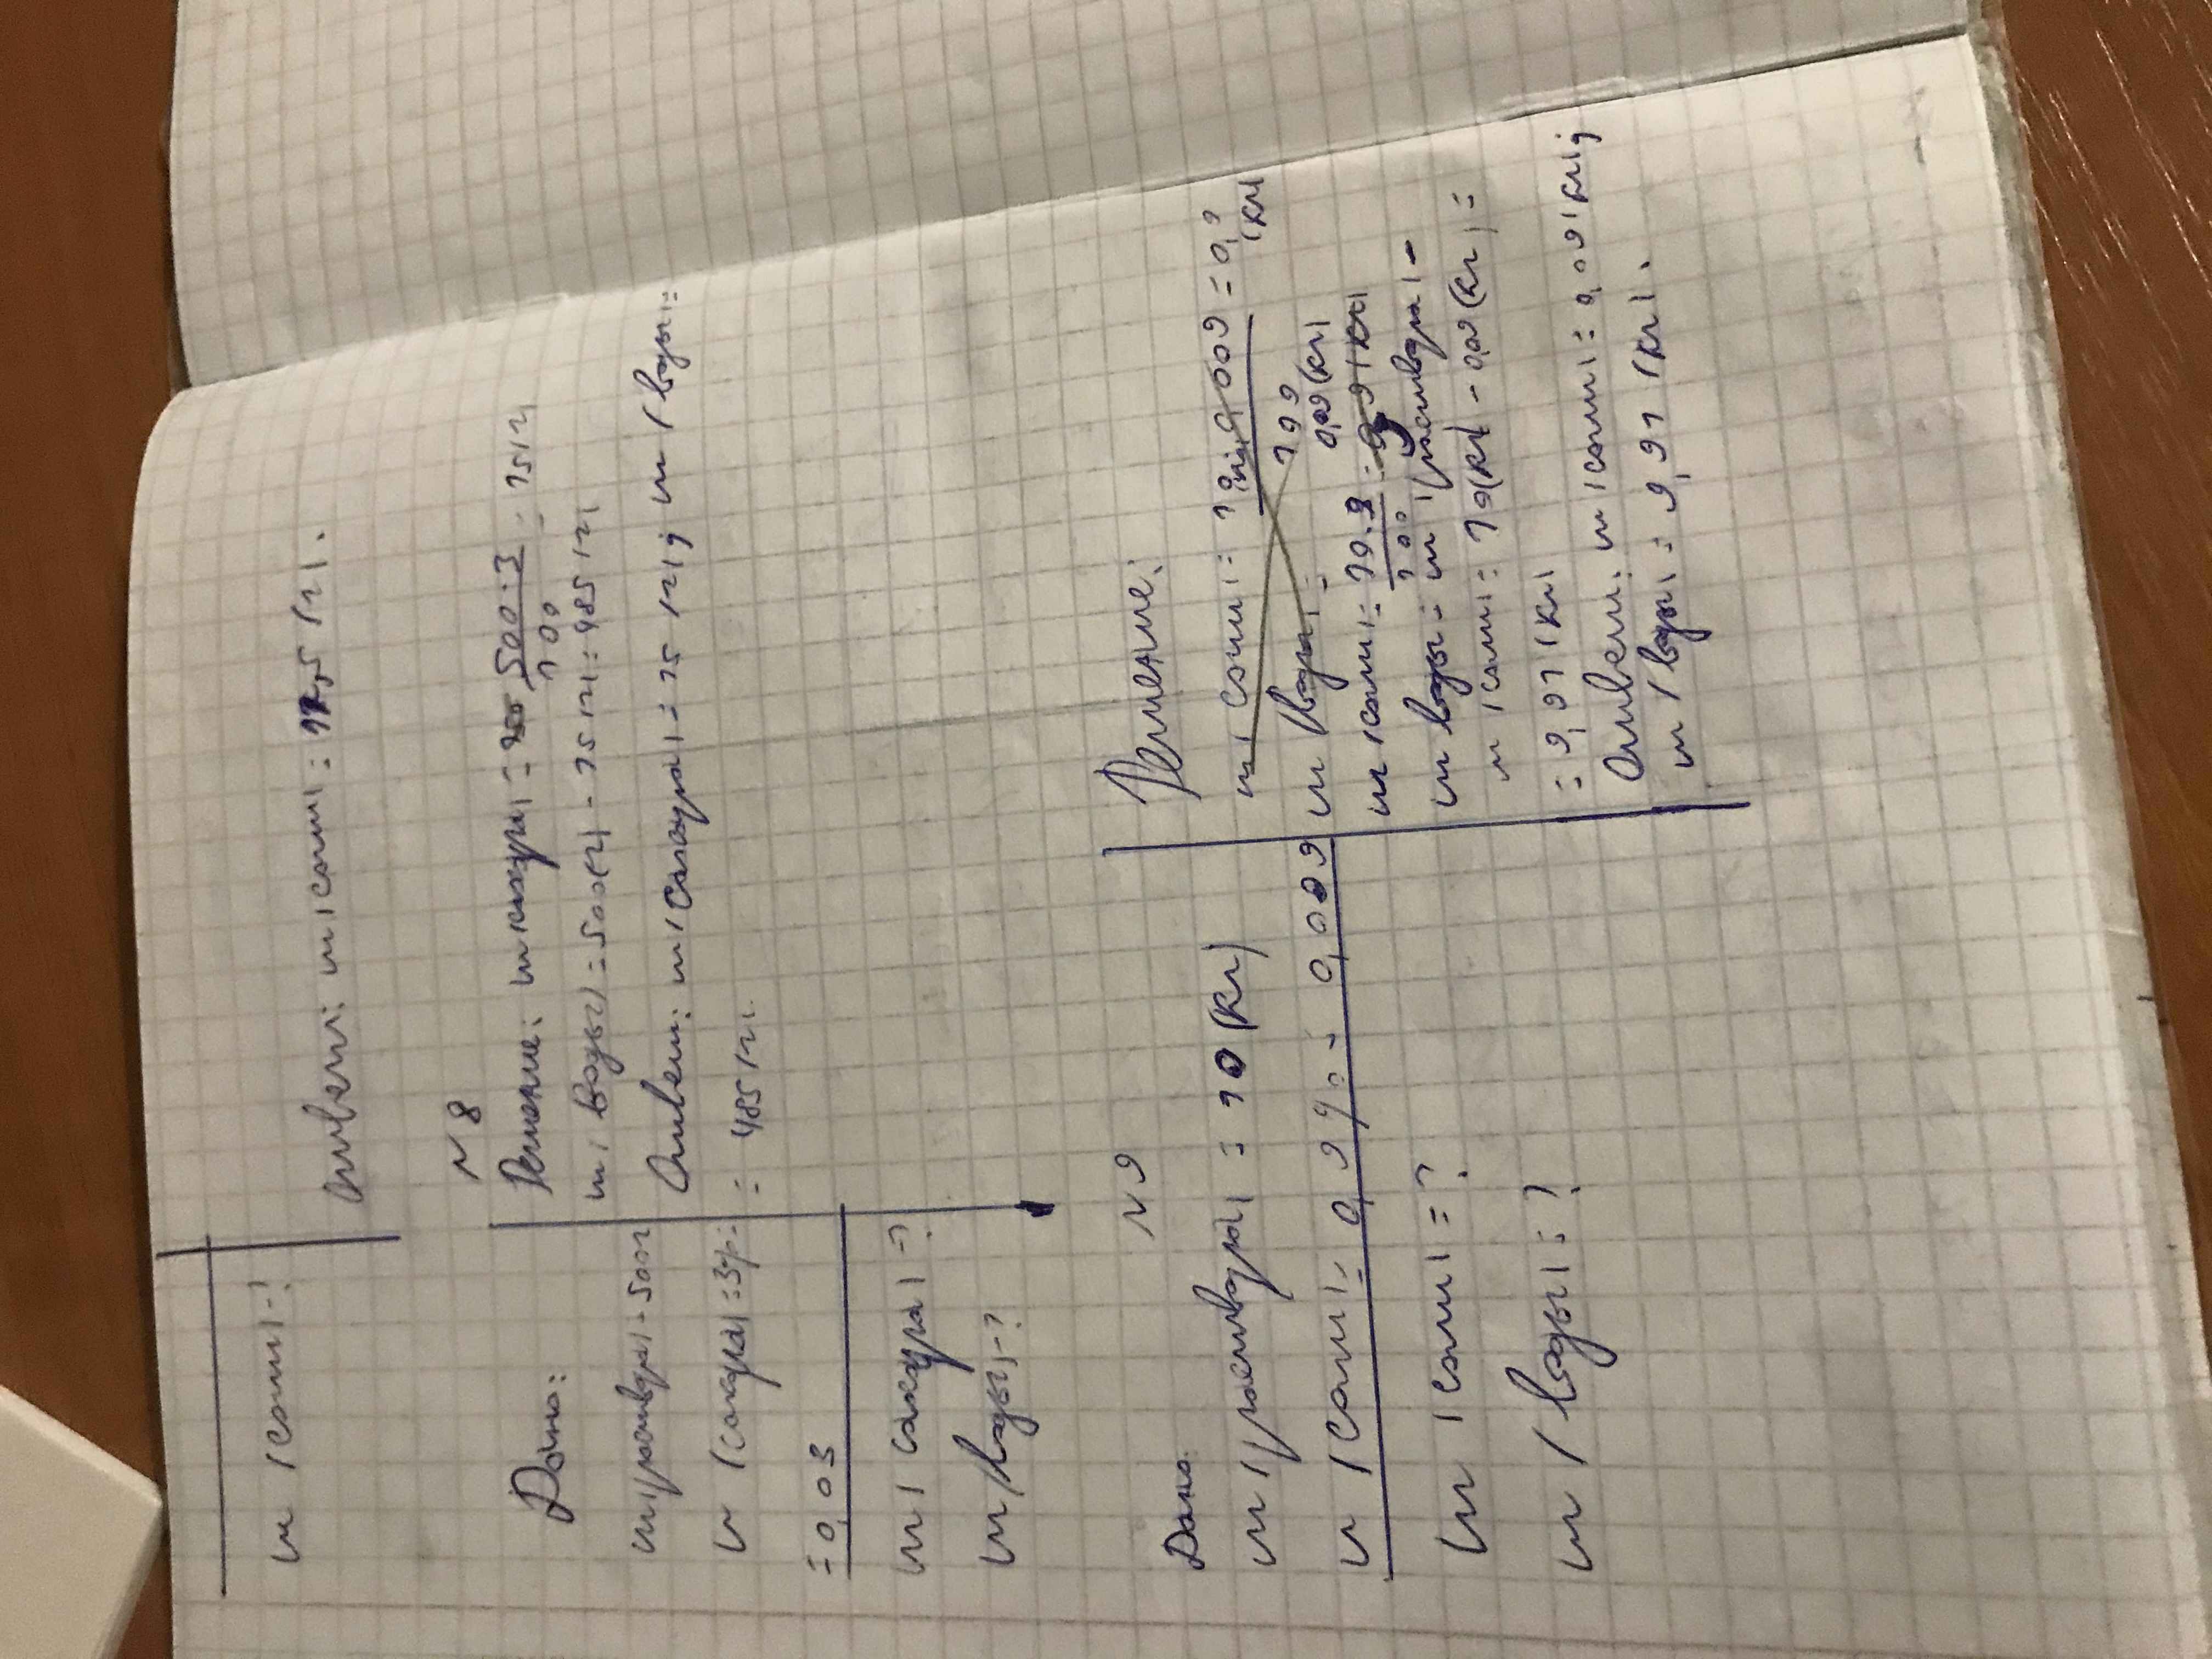 m (соли)-?
Ответ: m (соли) = 12,5 (г).
N 8
Дано:
m (раствора) - 500г
w (сахара) = 3% =
= 0,03
m (сахара) -?
m (воды) -?
Решение: m (сахара) = 500·3 / 100 = 15 (г)
m (воды) = 500 (г) - 15 (г) = 485 (г)
Ответ: m (Сахара) = 15 (г); m (воды) =
= 485 (г).
N 9
Дано:
m (раствора) = 10 (кг)
w (соли) = 0,9 % = 0,009
m (соли) = ?
m (воды) = ?
Решение:
m (соли) = = 0,9 (кг)
m (воды) =
m (соли) = 10·9 / 100 = 0,09 (кг)
m воды = m (раствора) -
m (соли) = 10 (кг) - 0,09 (кг) =
= 9,91 (кг)
Ответ: m (соли) = 0,09 (кг);
m (воды) = 9,91 (кг).